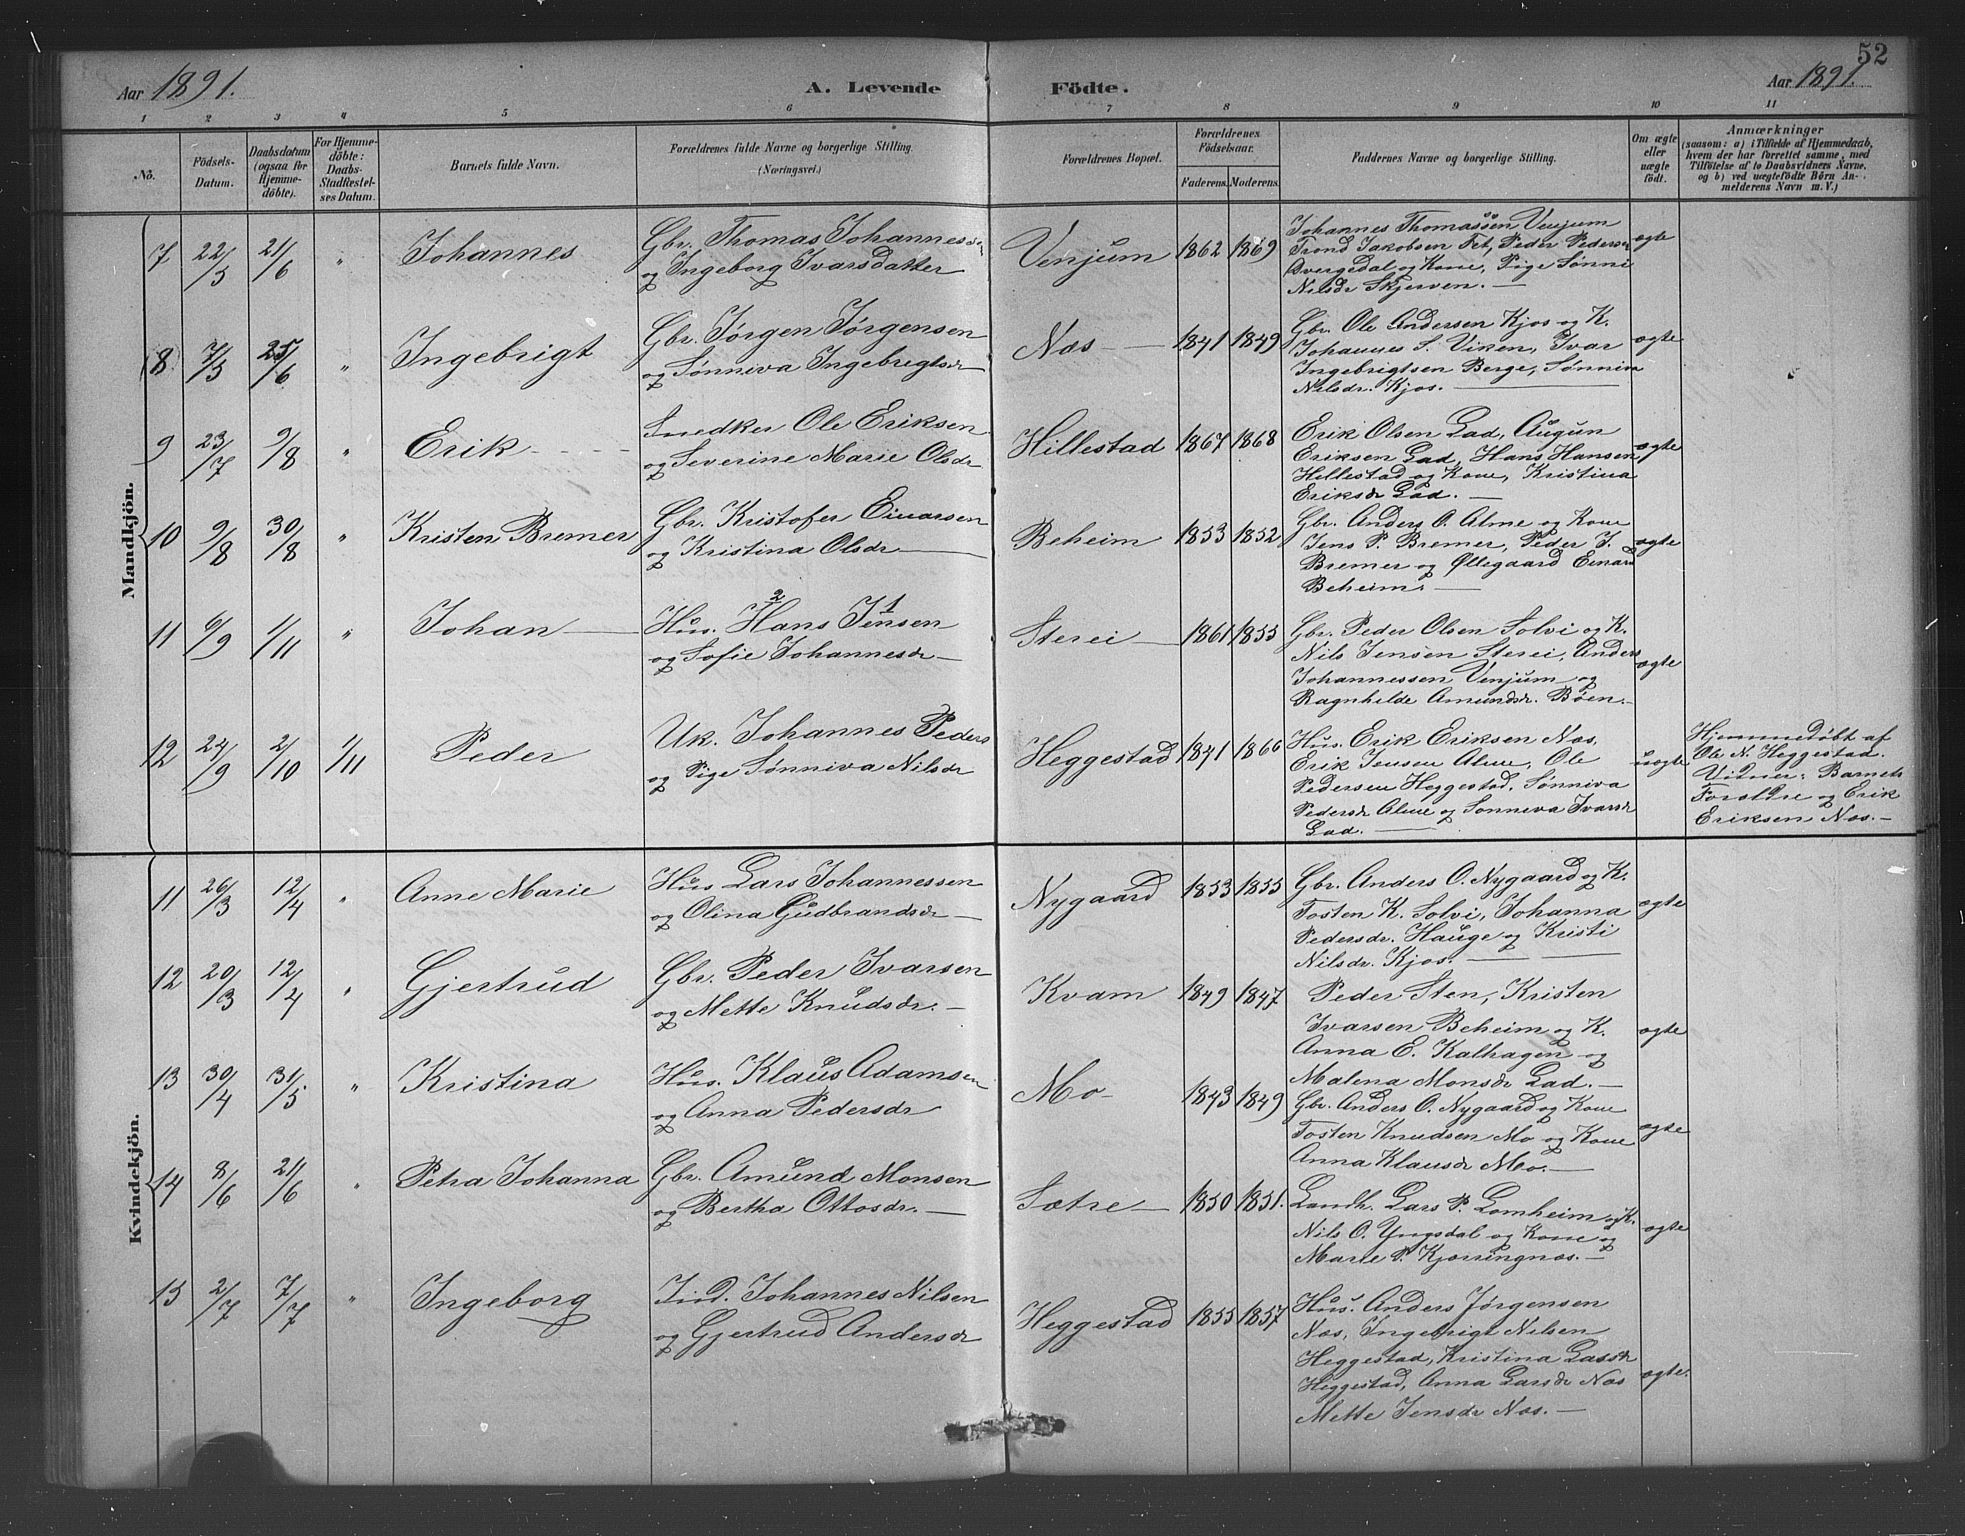 52
Aar 1891. A. Levende Födte. Aar 1891.
1 2 3 4 5 6 7 8 9 10 11
No. Födsels-Datum. Daabsdatum (ogsaa for Hjemme-döbte). For Hjemme-döbte: Daabs-Stadfæstel-ses Datum. Barnets fulde Navn. Forældrenes fulde Navne og borgerlige Stilling. (Næringsvei.) Forældrenes Bopæl. Forældrenes Födselsaar. Faderens. Moderens. Faddernes Navne og borgerlige Stilling. Om ægte eller uægte födt. Anmærkninger (saasom: a) i Tilfælde af Hjemmedaab, hvem der har forrettet samme, med Tilföielse af to Daabsvidners Navne, og b) ved uægtefödte Börn An-melderens Navn m. V.)
Mandkjön.
7 22/5 21/6 " Johannes Gbr. Thomas Johanness. Venjum 1862 1869 Johannes Thomassen Venjum ægte
og Ingeborg Ivarsdatter Trond Jakobsen Fet, Peder Pedersen
Dvergedal og Kone, Pige Sønni
Nilsdr Skjerven. —
(8) 7/5 25/6 " Ingebrigt Gbr. Jørgen Jørgensen Næs — 1841 1849 Gbr. Ole Andersen Kjos og K. ægte
og Sønniva Ingebregtsdr Johannes S. Viken, Ivar
Ingebrigtsen Berge, Sønniva
Nilsdr. Kjos. —
9 23/7 9/8 " Erik Snedker Ole Eriksen Hillestad 1867 1868 Erik Olsen Lad, Augun ægte
og Severine Marie Olsdr Eriksen Lad, Hans Hansen
Hillestad og Kone, Kristina
Eriksdr Lad. —
10 9/8 30/8 " Kristen Bremer Gbr. Kristofer Einarsen Beheim 1853 1852 Gbr. Anders O. Alme og Kone ægte
og Kristina Olsdr — Jens P. Bremer, Peder J.
Bremer og Øllegaard Einard
Beheim. —
11 6/9 1/11 " Johan — Hus. 2 Hans 1 Jensen Sterei — 1861 1855 Gbr. Peder Olsen Solvi og K. ægte
og Sofie Johannesdr — Nils Jensen Sterei, Anders
Johannessen Venjum og
Ragnhilde Amundsdr. Böen. —
12 24/9 2/10 1/11 Peder Uk. Johannes Peders Heggestad 1841 1866 Hus. Erik Eriksen Næs, uægte Hjemmedøbt af
og Pige Sønniva Nilsdr Erik Jensen Alme, Ole Ole N. Heggestad.
Pedersen Heggestad, Sønniva Vidner: Barnets
Pedersdr Alme og Sønneva Ivarsdr Forældre og Erik
Lad. — Eriksen Næs. —
Kvindekjön.
11 26/3 12/4 " Anne Marie Hus Lars Johannessen Nygaard 1853 1855 Gbr. Anders O. Nygaard og K. ægte
og Olina Gudbrandsdr — Tosten K. Solvi, Johanna
Pedersdr. Hauge og Kristi
Nilsdr. Kjos. —
12 20/3 12/4 " Gjertrud Gbr. Peder Ivarsen Kvam 1849 1847 Peder Sten, Kristen ægte
og Mette Knudsdr. — Ivarsen Beheim og K.
Anna E. Kalhagen og
Malena Monsdr Lad. —
13 30/4 31/5 " Kristina Hus. Klaus Adamsen Mo — 1843 1849 Gbr. Anders O. Nygaard og Kone ægte
og Anna Pedersdr Tosten Knudsen Mo og Kone
Anna Klausdr Mo. —
14 8/6 21/6 " Petra Johanna Gbr. Amund Monsen Sætre — 1850 1851. Landh. Lars P. Lomheim og K. ægte
og Bertha Ottosdr. — Nils O. Yngsdal og Kone og
Marie P. Kjørringnæs. —
15 2/7 7/7 " Ingeborg Ind. Johannes Nilsen Heggestad 1855 1857 Hus. Anders Jørgensen ægte.
og Gjertrud Andersdr Næs, Ingebrigt Nilsen
Heggestad, Kristina Larsdr
Heggestad, Anna Larsdr Næs
Mette Jensdr Næs. —